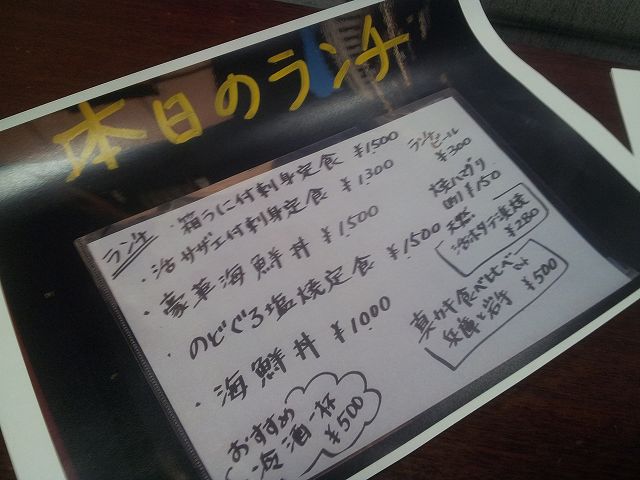 本日のランチ
ランチ
・箱うに付刺身定食 ¥1500
・活サザエ付刺身定食 ¥1300
・豪華海鮮丼 ¥1500
・のどぐろ塩焼定食 ¥1500
・海鮮丼 ¥1000
おすすめ
冷酒一杯
¥500
ランチ
ビール
¥300
焼ハマグリ
(1ヶ) ¥150
天然
活ホタテ浜焼
¥280
真カキ食べ比べセット
兵庫と岩手 ¥500